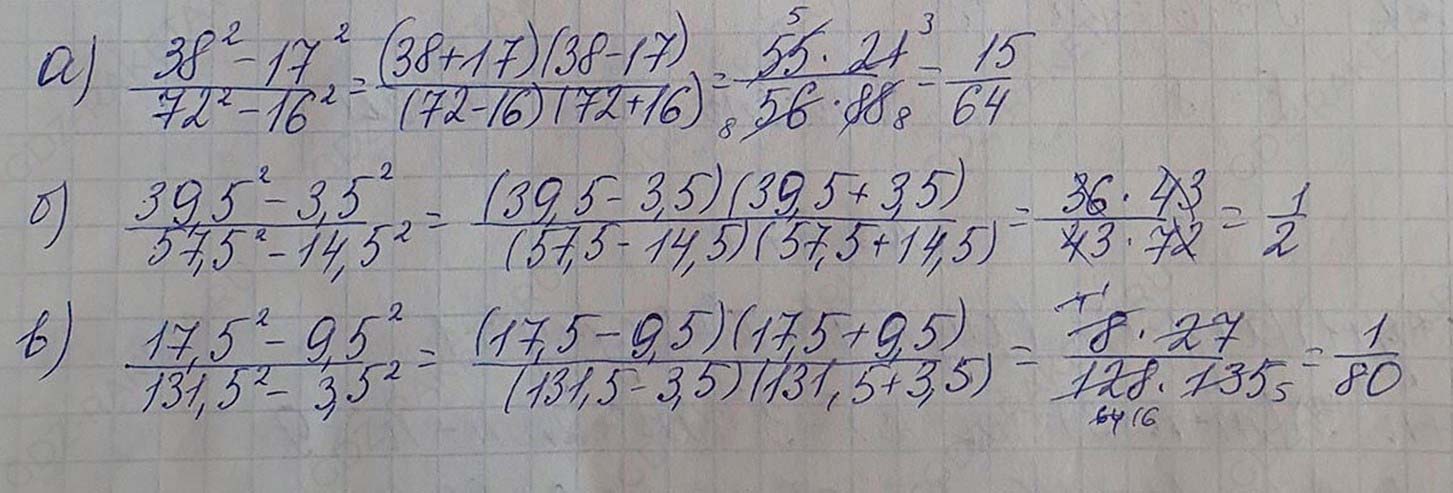 а) (38² - 17²)/(72² - 16²) = ((38+17)(38-17))/((72-16)(72+16)) = (55⁵ · 21³)/(₈56 · 88₈) = 15/64
б) (39,5² - 3,5²)/(57,5² - 14,5²) = ((39,5 - 3,5)(39,5 + 3,5))/((57,5 - 14,5)(57,5 + 14,5)) = (36 · 43)/(43 · 72) = 1/2
в) (17,5² - 9,5²)/(131,5² - 3,5²) = ((17,5 - 9,5)(17,5 + 9,5))/((131,5 - 3,5)(131,5 + 3,5)) = (8¹ · 27)/(128₁₆ · 135₅) = 1/80